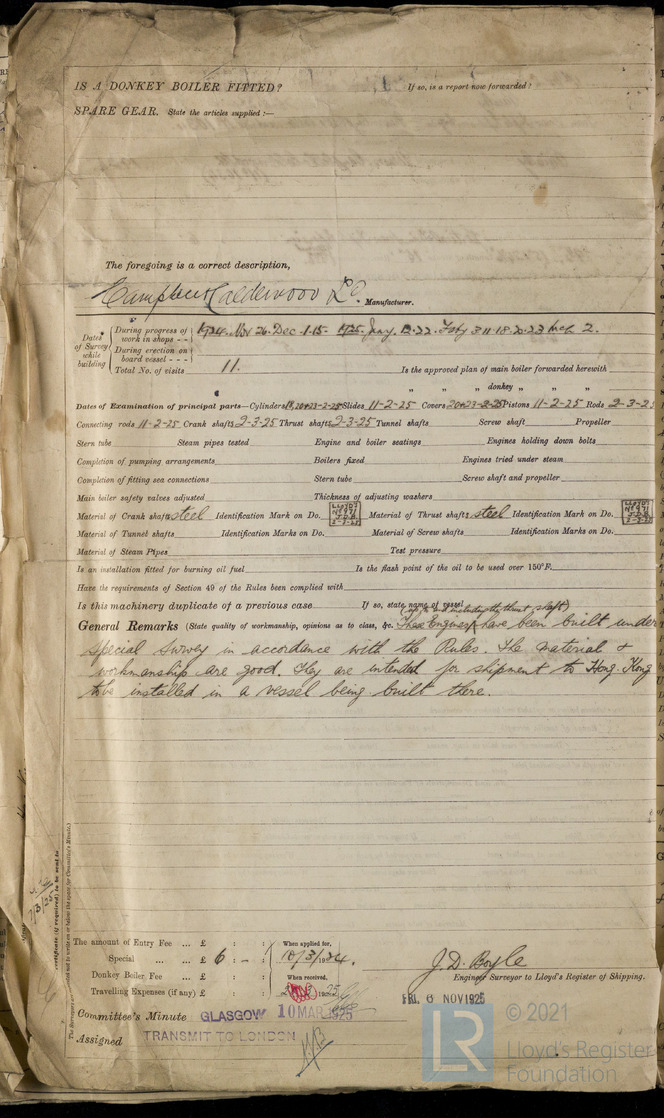 IS A DONKEY BOILER FITTED? If so, is a report now forwarded?
SPARE GEAR. State the articles supplied:—
The foregoing is a correct description,
Campbell & Calderwood Ld. Manufacturer.
Dates of Survey while building
During progress of work in shops - - 1924. Nov 26. Dec. 1. 15 - 1925 Jany. 22. Feby 3 11. 18. 20. 23 Mch 2.
During erection on board vessel - - -
Total No. of visits 11. Is the approved plan of main boiler forwarded herewith
" " " donkey " " "
Dates of Examination of principal parts—Cylinders 20+23-2-25 Slides 11-2-25 Covers 20+23-2-25 Pistons 11-2-25 Rods 2-3-25
Connecting rods 11-2-25 Crank shaft 2-3-25 Thrust shaft 2-3-25 Tunnel shafts Screw shaft Propeller
Stern tube Steam pipes tested Engine and boiler seatings Engines holding down bolts
Completion of pumping arrangements Boilers fixed Engines tried under steam
Completion of fitting sea connections Stern tube Screw shaft and propeller
Main boiler safety valves adjusted Thickness of adjusting washers
Material of Crank shafts steel Identification Mark on Do. LLOYDS J.D.B. 2-3-25 Material of Thrust shafts steel Identification Mark on Do. LLOYDS J.D.B. 2-3-25
Material of Tunnel shafts Identification Marks on Do. Material of Screw shafts Identification Marks on Do.
Material of Steam Pipes Test pressure
Is an installation fitted for burning oil fuel Is the flash point of the oil to be used over 150°F.
Have the requirements of Section 49 of the Rules been complied with
Is this machinery duplicate of a previous case If so, state name of vessel
(up to and including the thrust shaft)
General Remarks (State quality of workmanship, opinions as to class, &c. These Engines have been built under
special survey in accordance with the Rules. The material +
workmanship are good. They are intended for shipment to Hong Kong
to be installed in a vessel being built there.
certificate (if required) to be sent to
The amount of Entry Fee ... £ : :
Special ... ... £ 6 : - :
Donkey Boiler Fee ... £ : :
Travelling Expenses (if any) £ : :
When applied for,
10/3/1924.
When received,
1925
J.D. Boyle
Engineer Surveyor to Lloyd's Register of Shipping.
Committee's Minute GLASGOW 10 MAR 1925
FRI. 6 NOV 1925
Assigned TRANSMIT TO LONDON
© 2021
LR
Lloyd's Register
Foundation